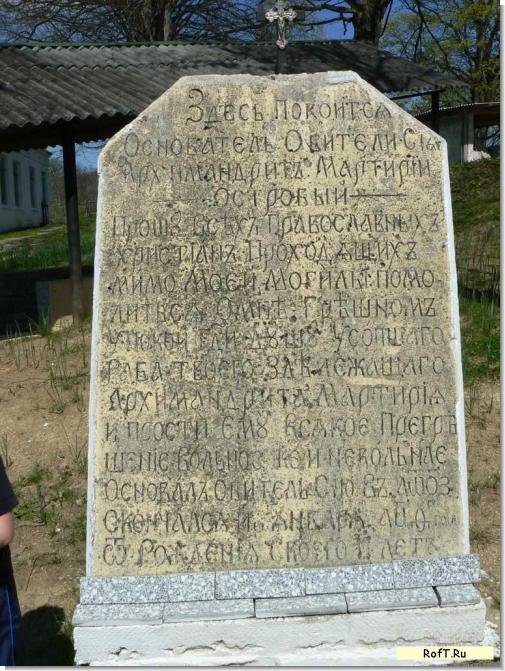 Здесь Покоится
Основатель Обители Сія
Архимандритъ Мартирій
Островый
Прошу всѣхъ Православныхъ
Христіанъ Проходящихъ
мимо Моеи Могилы помо
литься Омнѣ Грѣшномъ
Упокой Гди Душу Усопшаго
Раба Твоего Завлежащаго
Архимандрита Мартирія
и прости ему всякое Прегрѣ
шеніе вольное же и невольнае
Основалъ Обитель Сію въ
Скончался Января
Ѿ Рождения Своего лѣтъ
RofT.Ru